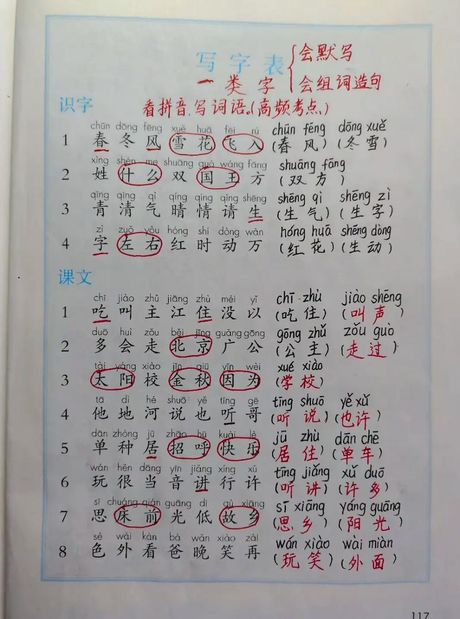 写字表 会默写
一类字 会组词造句
识字 看拼音,写词语。(高频考点)
chūn dōng fēng xuě huā fēi rù chūn fēng dōng xuě
1 春冬风雪花飞入 (春风)(冬雪)
xìng shén me shuāng guó wáng fāng shuāng fāng
2 姓什么双国王方 (双方)
qīng qīng qì qíng qíng qǐng shēng shēng qì shēng zì
3 青清气晴情请生 (生气)(生字)
zì zuǒ yòu hóng shí dòng wàn hóng huā shēng dòng
4 字左右红时动万 (红花)(生动)
课文
chī jiào zhǔ jiāng zhù méi yǐ chī zhù jiào shēng
1 吃叫主江住没以 (吃住)(叫声)
duō huì zǒu běi jīng guǎng gōng gōng zhǔ zǒu guo
2 多会走北京广公 (公主)(走过)
tài yáng xiào jīn qiū yīn wèi xué xiào
3 太阳校金秋因为 (学校)
tā dì hé shuō yě tīng gē tīng shuō yě xǔ
4 他地河说也听哥 (听说)(也许)
dān zhǒng jū zhāo hū kuài lè jū zhù dān chē
5 单种居招呼快乐 (居住)(单车)
wán hěn dāng yīn jiǎng xíng xǔ tīng jiǎng xǔ duō
6 玩很当音讲行许 (听讲)(许多)
sī chuáng qián guāng dī gù xiāng sī xiāng yáng guāng
7 思床前光低故乡 (思乡)(阳光)
sè wài kàn bà wǎn xiào zài wán xiào wài miàn
8 色外看爸晚笑再 (玩笑)(外面)
117